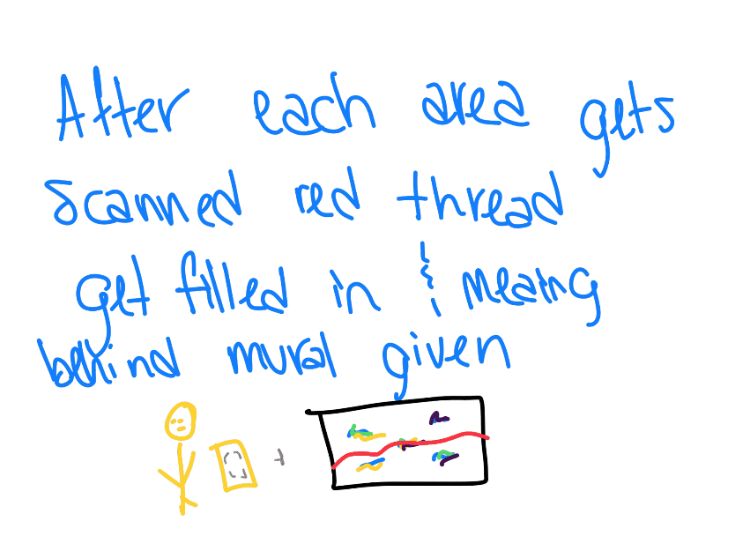 After each area gets
scanned red thread
get filled in & meaing
behind mural given
+